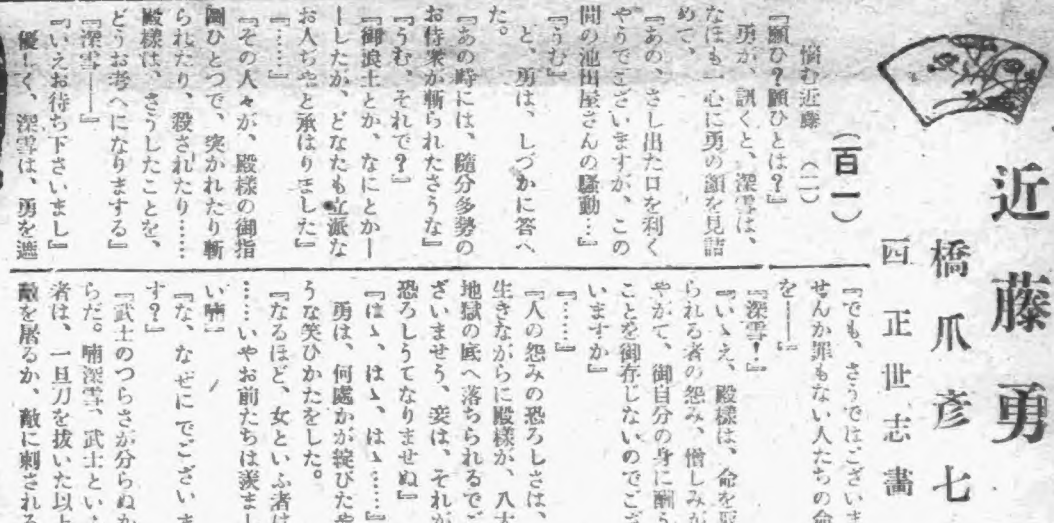 近藤勇
橋爪彦七
四正世志畵
(百一)
悩む近藤(二)
『願ひ?願ひとは?』
勇が、訊くと、深雪は、
なほも一心に勇の顏を見詰
めて、
『あの、さし出た口を利く
やうでございますが、この
間の池田屋さんの騷動…』
『うむ』
と、勇は、しづかに答へ
た。
『あの時には、隨分多勢の
お侍衆が斬られたさうな』
『うむ、それで?』
『御浪士とか、なにとか―
―したか、どなたも立派な
お人ぢやと承はりました』
『……』
『その人々が、殿樣の御指
圖ひとつで、突かれたり斬
られたり、殺されたり……
殿樣は、さうしたことを、
どうお考へになりまする』
『深雪――』
『いえお待ち下さいまし』
優しく、深雪は、勇を遮
『でも、さうではございま
せんか罪もない人たちの命
を――』
『深雪!』
『いゝえ、殿樣は、命を取
られる者の怨み、憎しみが
やがて、御自分の身に酬う
ことを御存じないのでござ
いますか』
『……』
『人の怨みの恐ろしさは、
生きながらに殿樣が、八大
地獄の底へ落ちられるでご
ざいませう、妾は、それが
恐ろしうてなりませぬ』
『はゝ、はゝ、はゝ……』
勇は、何處かが綻びたや
うな笑ひかたをした。
『なるほど、女といふ者は
……いやお前たちは羨まし
い喃』
『な、なぜにでございま
す?』
『武士のつらさが分らぬか
らだ。喃深雪、武士とい
者は、一旦刀を拔いた以上
敵を屠るか、敵に刺される